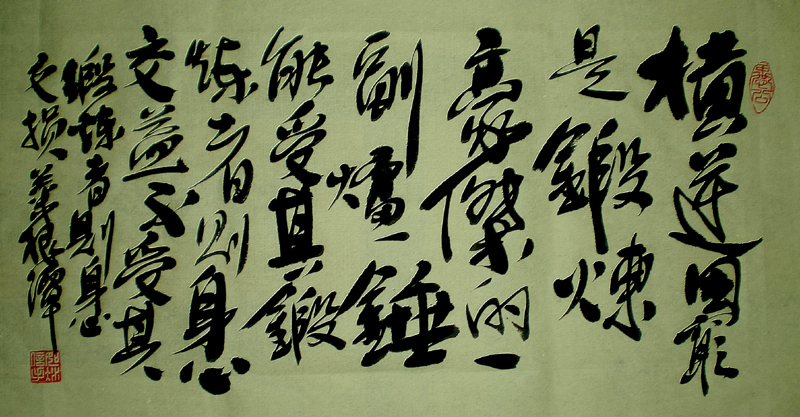 橫逆困窮
是鍛煉
豪傑的一
副爐錘
能受其鍛
炼者则身心
交益不受其
鍛炼者则身心
交损菜根譚